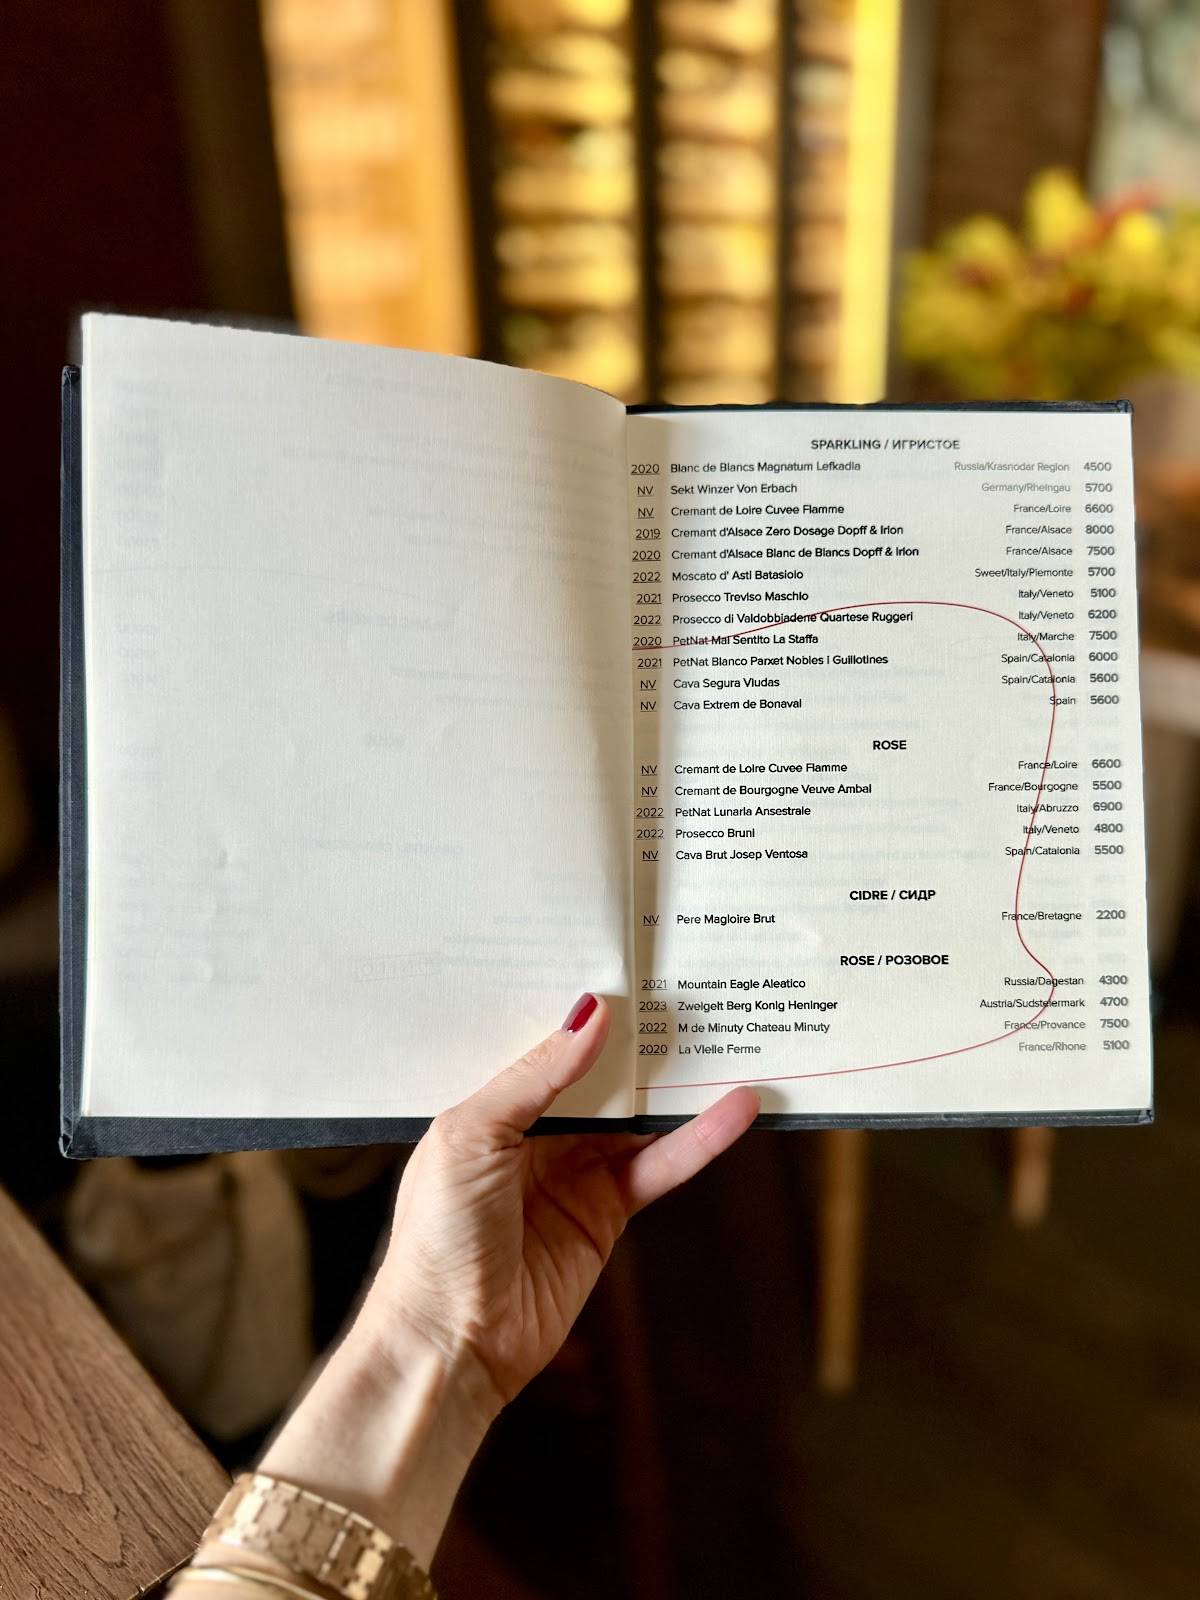 SPARKLING / ИГРИСТОЕ
2020 Blanc de Blancs Magnatum Lefkadia Russia/Krasnodar Region 4500
NV Sekt Winzer Von Erbach Germany/Rheingau 5700
NV Cremant de Loire Cuvee Flamme France/Loire 6600
2019 Cremant d'Alsace Zero Dosage Dopff & Irion France/Alsace 8000
2020 Cremant d'Alsace Blanc de Blancs Dopff & Irion France/Alsace 7500
2022 Moscato d' Asti Batasiolo Sweet/Italy/Piemonte 5700
2021 Prosecco Treviso Maschio Italy/Veneto 5100
2022 Prosecco di Valdobbiadene Quartese Ruggeri Italy/Veneto 6200
2020 PetNat Mai Sentito La Staffa Italy/Marche 7500
2021 PetNat Blanco Parxet Nobles i Guillotines Spain/Catalonia 6000
NV Cava Segura Viudas Spain/Catalonia 5600
NV Cava Extrem de Bonaval Spain 5600
ROSE
NV Cremant de Loire Cuvee Flamme France/Loire 6600
NV Cremant de Bourgogne Veuve Ambal France/Bourgogne 5500
2022 PetNat Lunaria Ansestrale Italy/Abruzzo 6900
2022 Prosecco Bruni Italy/Veneto 4800
NV Cava Brut Josep Ventosa Spain/Catalonia 5500
CIDRE / СИДР
NV Pere Magloire Brut France/Bretagne 2200
ROSE / РОЗОВОЕ
2021 Mountain Eagle Aleatico Russia/Dagestan 4300
2023 Zweigelt Berg Konig Heninger Austria/Sudsteiermark 4700
2022 M de Minuty Chateau Minuty France/Provance 7500
2020 La Vielle Ferme France/Rhone 5100